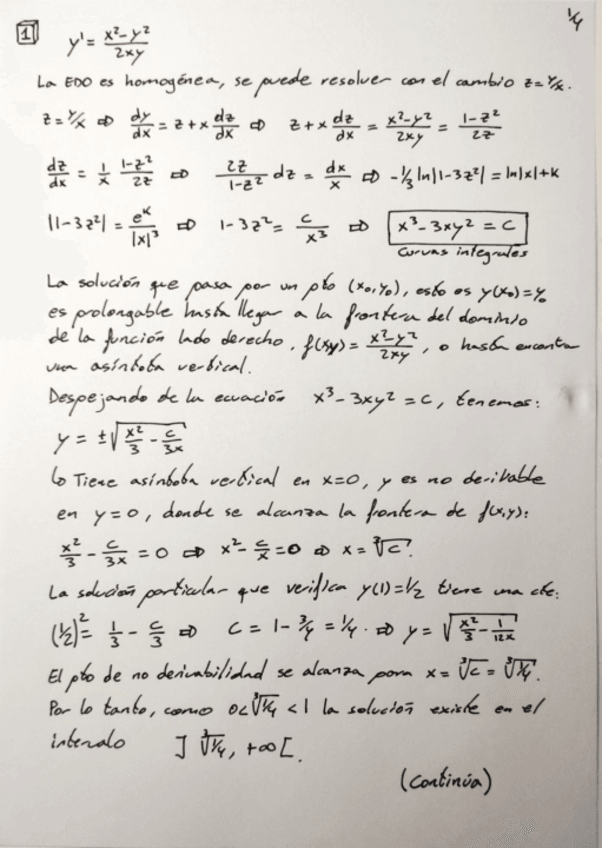 1/4
1 y' = (x²-y²)/(2xy)
La EDO es homogénea, se puede resolver con el cambio z=y/x.
z=y/x ⇒ dy/dx = z+x dz/dx ⇒ z+x dz/dx = (x²-y²)/(2xy) = (1-z²)/(2z)
dz/dx = 1/x (1-z²)/(2z) ⇒ 2z/(1-z²) dz = dx/x ⇒ -1/3 ln|1-3z²| = ln|x|+K
|1-3z²| = e^K/|x|³ ⇒ 1-3z² = c/x³ ⇒ x³-3xy² = c
curvas integrales
La solución que pasa por un pto (x₀,y₀), esto es y(x₀)=y₀
es prolongable hasta llegar a la frontera del dominio
de la función lado derecho, f(x,y) = (x²-y²)/(2xy), o hasta encontrar
una asíntota vertical.
Despejando de la ecuación x³-3xy² = c, tenemos:
y = ±√(x²/3 - c/(3x))
↳ Tiene asíntota vertical en x=0, y es no derivable
en y=0, donde se alcanza la frontera de f(x,y):
x²/3 - c/(3x) = 0 ⇒ x² - c/x = 0 ⇒ x = ∛c.
La solución particular que verifica y(1)=1/2 tiene una cte:
(1/2)² = 1/3 - c/3 ⇒ c = 1-3/4 = 1/4. ⇒ y = √(x²/3 - 1/(12x))
El pto de no derivabilidad se alcanza para x = ∛c = ∛(1/4).
Por lo tanto, como 0<∛(1/4)<1 la solución existe en el
intervalo ]∛(1/4), +∞[.
(continúa)